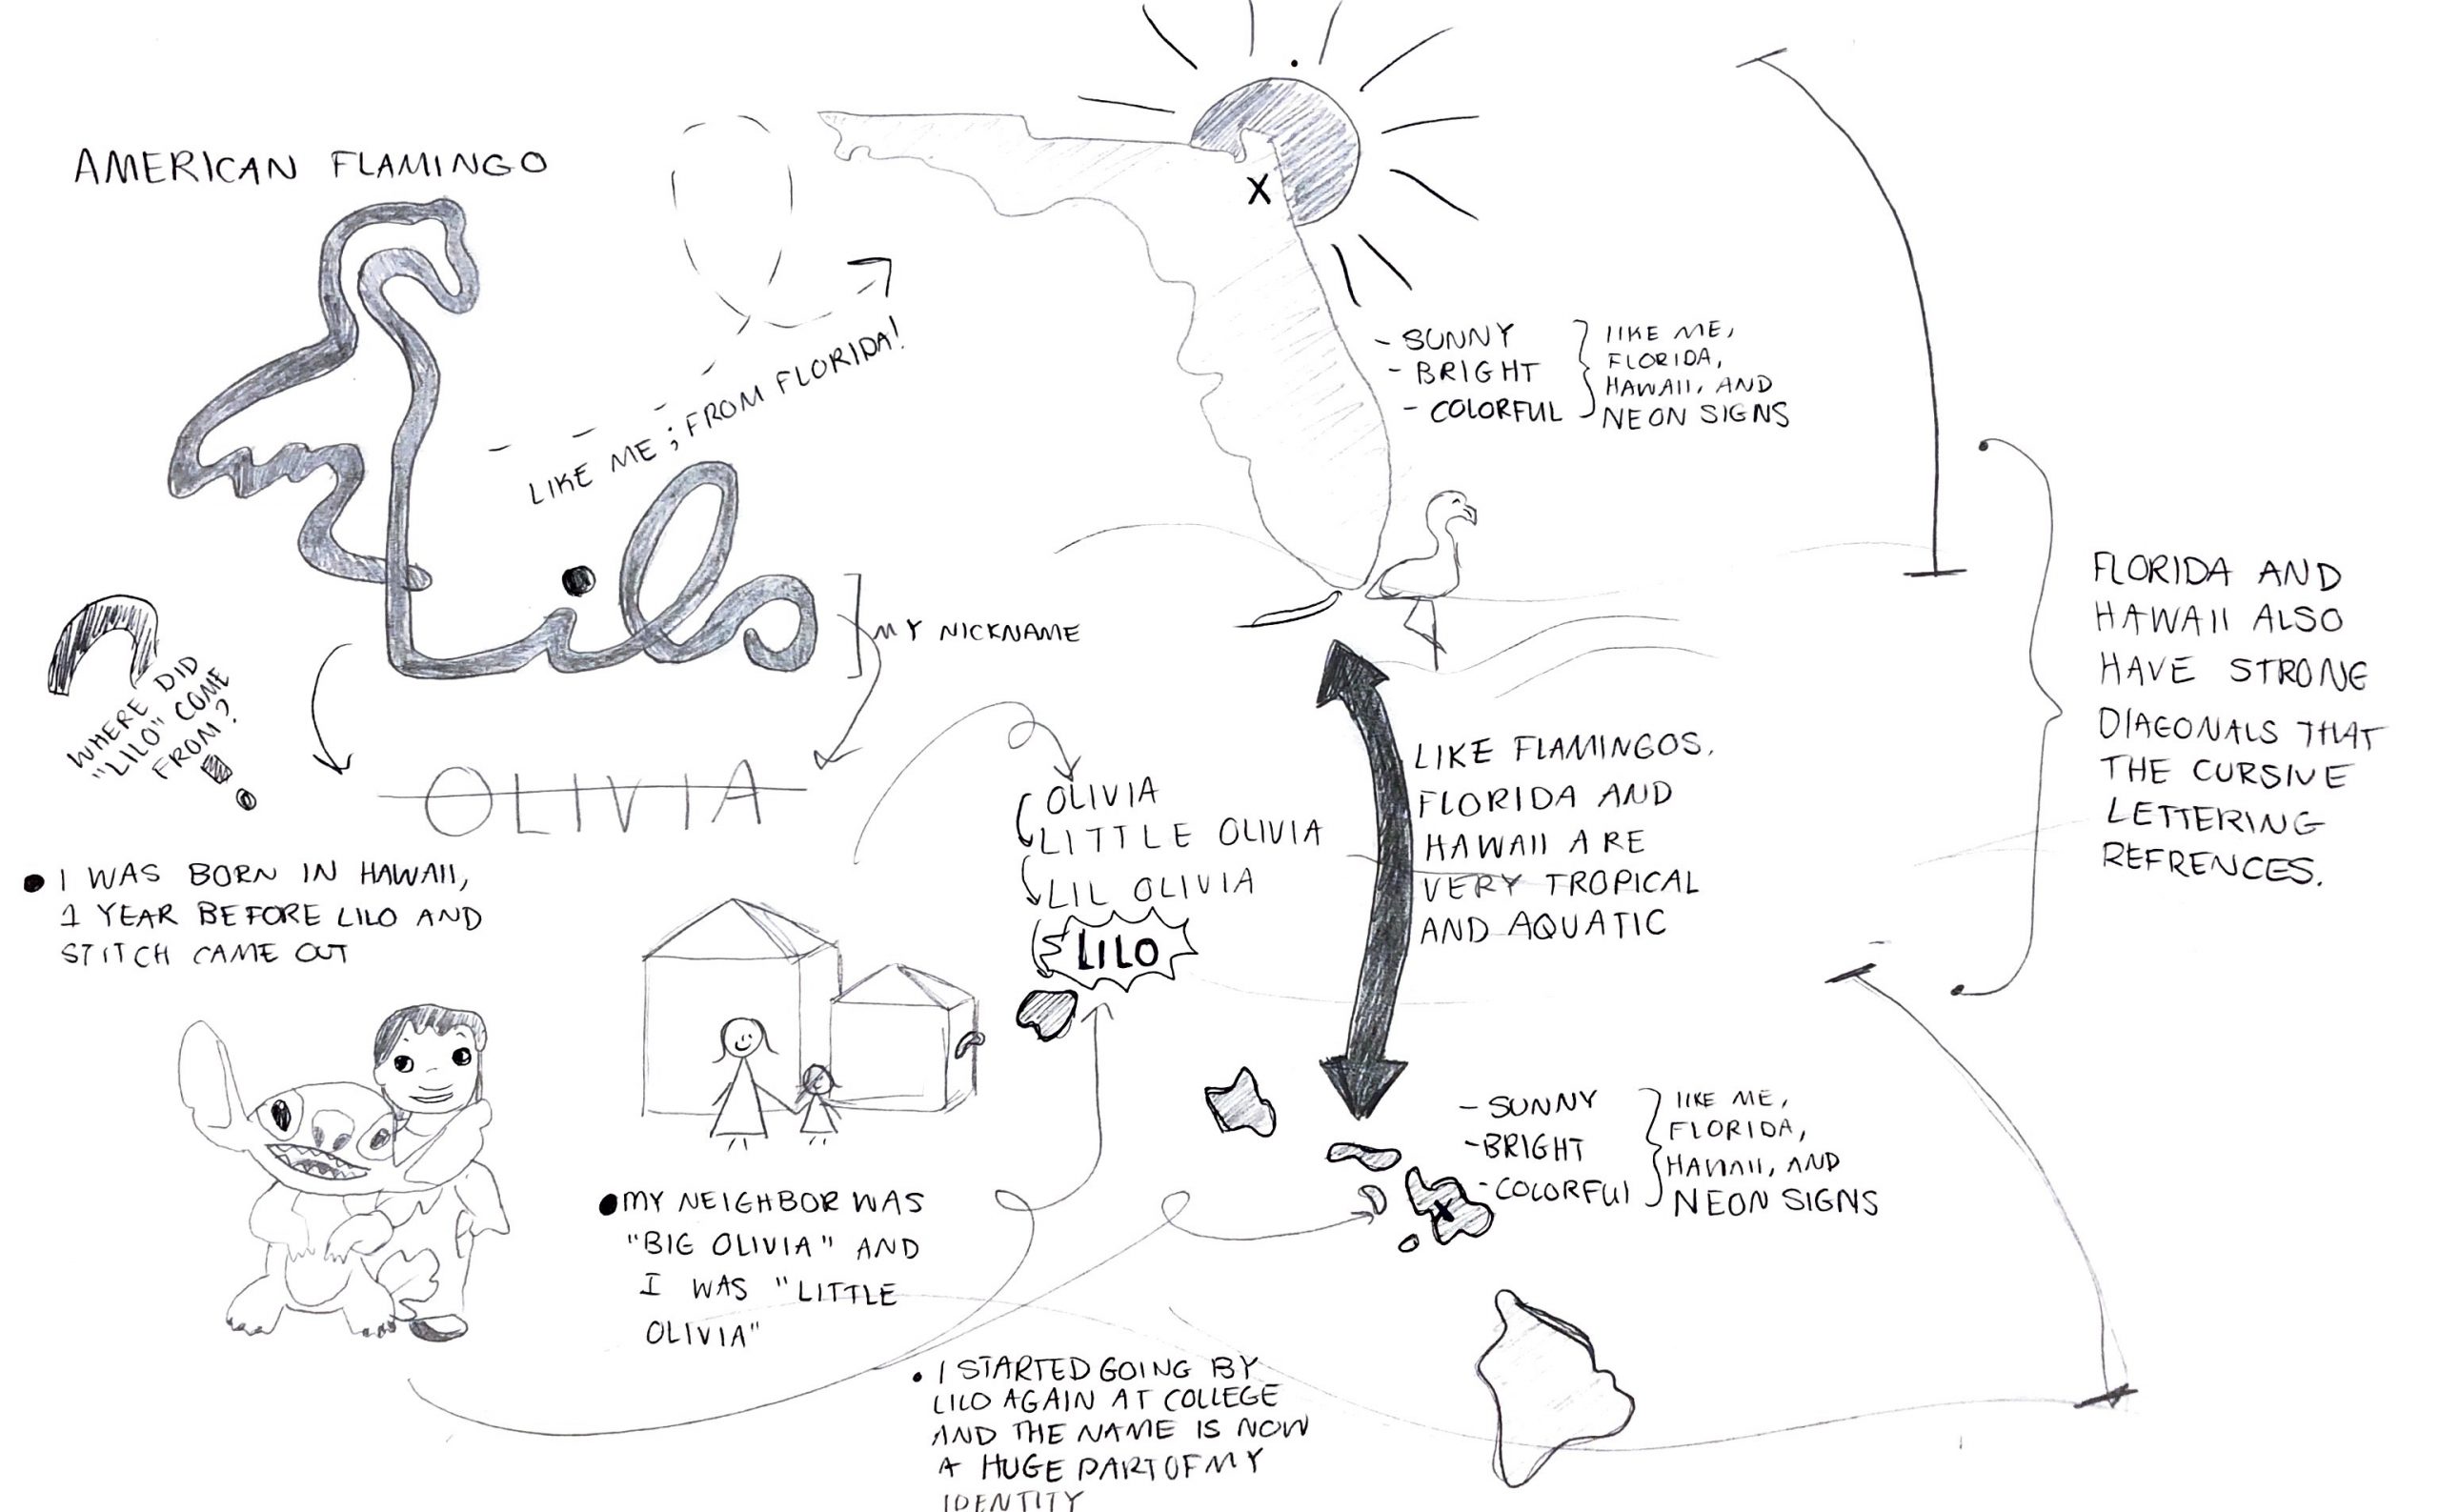 AMERICAN FLAMINGO
LIKE ME; FROM FLORIDA!
Lilo
MY NICKNAME
WHERE DID
"LILO" COME
FROM?
OLIVIA
I WAS BORN IN HAWAII,
1 YEAR BEFORE LILO AND
STITCH CAME OUT
MY NEIGHBOR WAS
"BIG OLIVIA" AND
I WAS "LITTLE
OLIVIA"
OLIVIA
LITTLE OLIVIA
LIL OLIVIA
LILO
I STARTED GOING BY
LILO AGAIN AT COLLEGE
AND THE NAME IS NOW
A HUGE PART OF MY
IDENTITY
X
- SUNNY
- BRIGHT
- COLORFUL
LIKE ME,
FLORIDA,
HAWAII, AND
NEON SIGNS
LIKE FLAMINGOS,
FLORIDA AND
HAWAII ARE
VERY TROPICAL
AND AQUATIC
- SUNNY
- BRIGHT
- COLORFUL
LIKE ME,
FLORIDA,
HAWAII, AND
NEON SIGNS
X
FLORIDA AND
HAWAII ALSO
HAVE STRONG
DIAGONALS THAT
THE CURSIVE
LETTERING
REFRENCES.